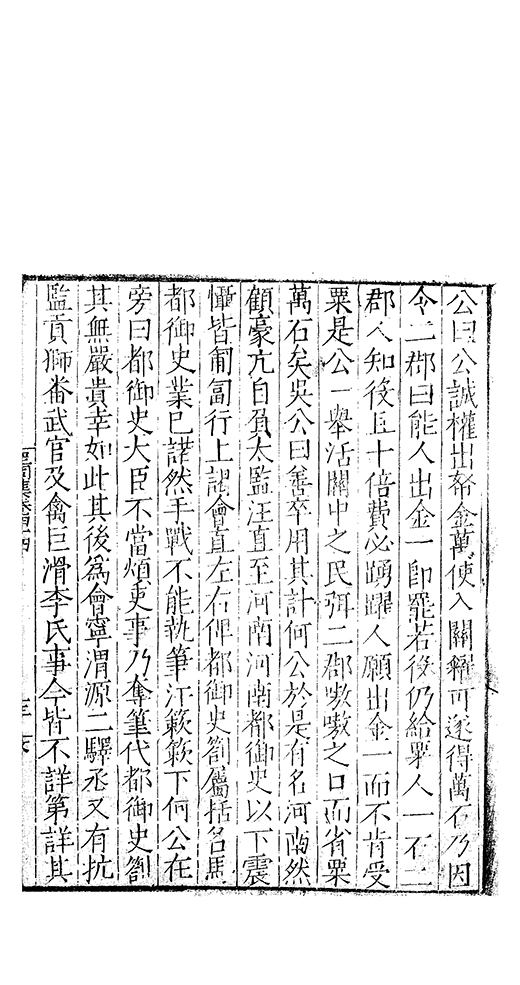 公曰公誠權出帑金萬使入關糴可遂得萬石乃因
令二郡曰能人出金一卽罷若役仍給粟人一石二
郡人知役且十倍費必踴躍人願出金一而不肯受
粟是公一舉活關中之民弭二郡嗷嗷之口而省粟
萬石矣吳公曰善卒用其計何公於是有名河南然
顧豪亢自負太監汪直至河南河南都御史以下震
懾皆匍匐行上謁會直左右俾都御史劄屬括名馬
都御史業已諾然手戰不能執筆汗簌簌下何公在
旁曰都御史大臣不當煩吏事乃奪筆代都御史劄
其無嚴貴幸如此其後為會寧渭源二驛丞又有抗
監貢獅番武官及禽巨滑李氏事今皆不詳第詳其